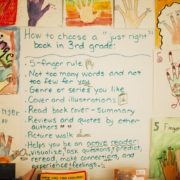 How to choose a "just right"
book in 3rd grade!
5-finger rule
Not too many words and not
too few for you
Genre or series you like
Cover and illustrations
Read back cover - Summary
Reviews and quotes by other
authors
Picture walk
Helps you be an active reader:
visualize, ask questions, predict,
reread, make connections, and
experience feelings.
5 Finger